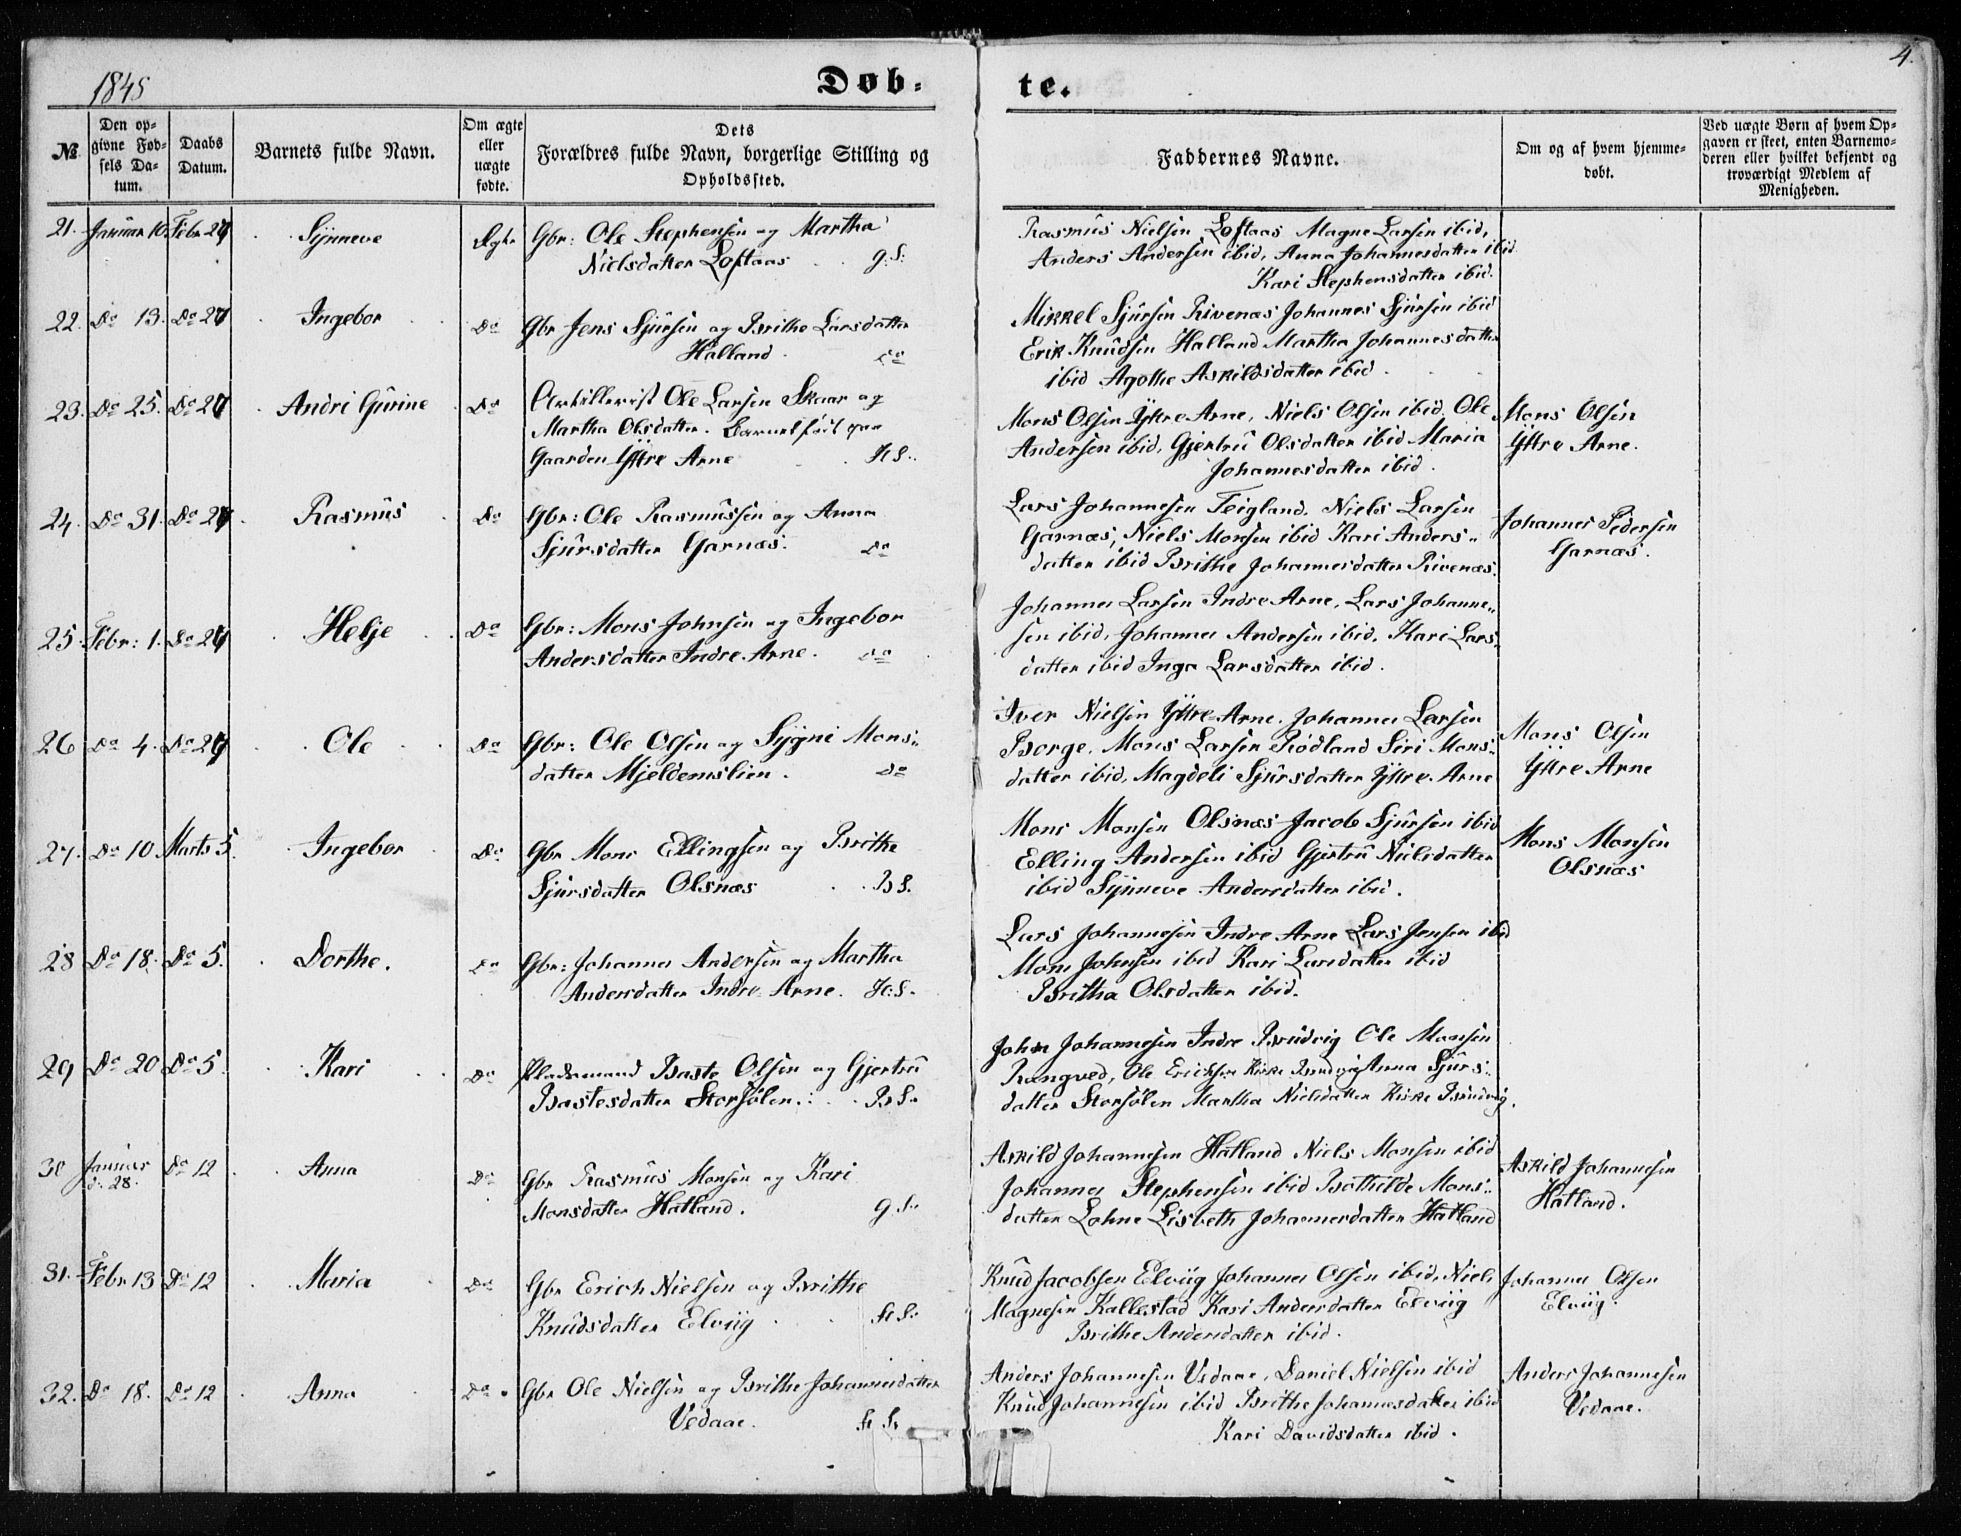 1845
Døb-
te.
4.
№
Den op-
givne Fød-
sels Da-
tum.
Daabs
Datum.
Barnets fulde Navn.
Om ægte
eller
uægte
fødte.
Dets
Forældres fulde Navn, borgerlige Stilling og
Opholdssted.
Faddernes Navne.
Om og af hvem hjemme-
døbt.
Ved uægte Børn af hvem Op-
gaven er skeet, enten Barnemo-
deren eller hvilket bekjendt og
troværdigt Medlem af
Menigheden.
21. Januar 10. Febr 24 Synneve Ægte Gbr: Ole Stephensen og Martha
Nielsdatter Loftaas G: S:
Rasmus Nielsen Loftaas Magne Larsen ibid,
Anders Andersen ibid, Anna Johannesdatter ibid
Kari Stephensdatter ibid.
22. Do 13. Do 27 Ingebor Do Gbr Jens Sjursen og Brithe Larsdatter
Halland Do
Mikkel Sjursen Rivenæs Johannes Sjursen ibid
Erik Knudsen Halland Martha Johannesdatter
ibid Agothe Askildsdatter ibid
23. Do 25. Do 27 Andri Gurine Do Artillerist Ole Larsen Skaar og
Martha Olsdatter. Barnet født paa
Gaarden Yttre Arne H S:
Mons Olsen Yttre Arne, Niels Olsen ibid, Ole
Andersen ibid, Gjertru Olsdatter ibid Maria
Johannesdatter ibid.
Mons Olsen
Yttre Arne.
24. Do 31. Do 24 Rasmus Do Gbr: Ole Rasmussen og Anna
Sjursdatter Garnæs. Do
Lars Johannesen Teigland. Niels Larsen
Garnæs, Niels Monsen ibid Kari Anders-
datter ibid Brithe Johannesdatter Rivenæs.
Johannes Pedersen
Garnæs.
25. Febr: 1. Do 24 Helje Do Gbr: Mons Johnsen og Ingebor
Andersdatter Indre Arne. Do
Johannes Larsen Indre Arne, Lars Johanne-
sen ibid, Johannes Andersen ibid, Kari Lars-
datter ibid Inga Larsdatter ibid.
26 Do 4. Do 24 Ole Do Gbr: Ole Olsen og Sygni Mons-
datter Mjeldemslien. Do
Iver Nielsen Yttre Arne. Johannes Larsen
Borge, Mons Larsen Rødland Siri Mons-
datter ibid, Magdeli Sjursdatter Yttre Arne
Mons Olsen
Yttre Arne
27. Do 10. Marts 5. Ingebor Do Gbr Mons Ellingsen og Brithe
Sjursdatter Olsnæs B S.
Mons Monsen Olsnæs Jacob Sjursen ibid
Elling Andersen ibid Gjertru Nielsdatter
ibid Synneve Andersdatter ibid.
Mons Monsen
Olsnæs
28 Do 18. Do 5. Dorthe. Do Gbr: Johannes Andersen og Martha
Andersdatter Indre Arne. H: S.
Lars Johannesen Indre Arne Lars Jensen ibid
Mons Johnsen ibid Kari Larsdatter ibid
Britha Olsdatter ibid.
29 Do 20 Do 5. Kari Do Pladsmand Baste Olsen og Gjertru
Bastesdatter Storsølen. B S.
John Johannesen Indre Brudvig Ole Monsen
Rongved, Ole Erichsen Kirke Brudvig Anna Sjurs-
datter Storsølen Martha Nielsdatter Kirke Brudvig.
30 Januar
d. 28. Do 12 Anna Do Gbr Rasmus Monsen og Kari
Monsdatter Hatland. G. S.
Askild Johannesen Hatland Niels Monsen ibid
Johannes Stephensen ibid Bothilde Mons-
datter Lohne Lisbeth Johannesdatter Hatland
Askild Johannesen
Hatland.
31. Febr 13 Do 12 Maria Do Gbr Erich Nielsen og Brithe
Knudsdatter Elviig H S.
Knud Jacobsen Elviig Johannes Olsen ibid, Niels
Magnesen Kallestad Kari Andersdatter Elviig
Brithe Andersdatter ibid.
Johannes Olsen
Elviig.
32. Do 18. Do 12 Anna Do Gbr Ole Nielsen og Brithe Johannesdatter
Vedaae. H S.
Anders Johannesen Vedaae, Daniel Nielsen ibid
Knud Johannesen ibid Brithe Johannesdatter ibid
Kari Davidsdatter ibid.
Anders Johannesen
Vedaae.